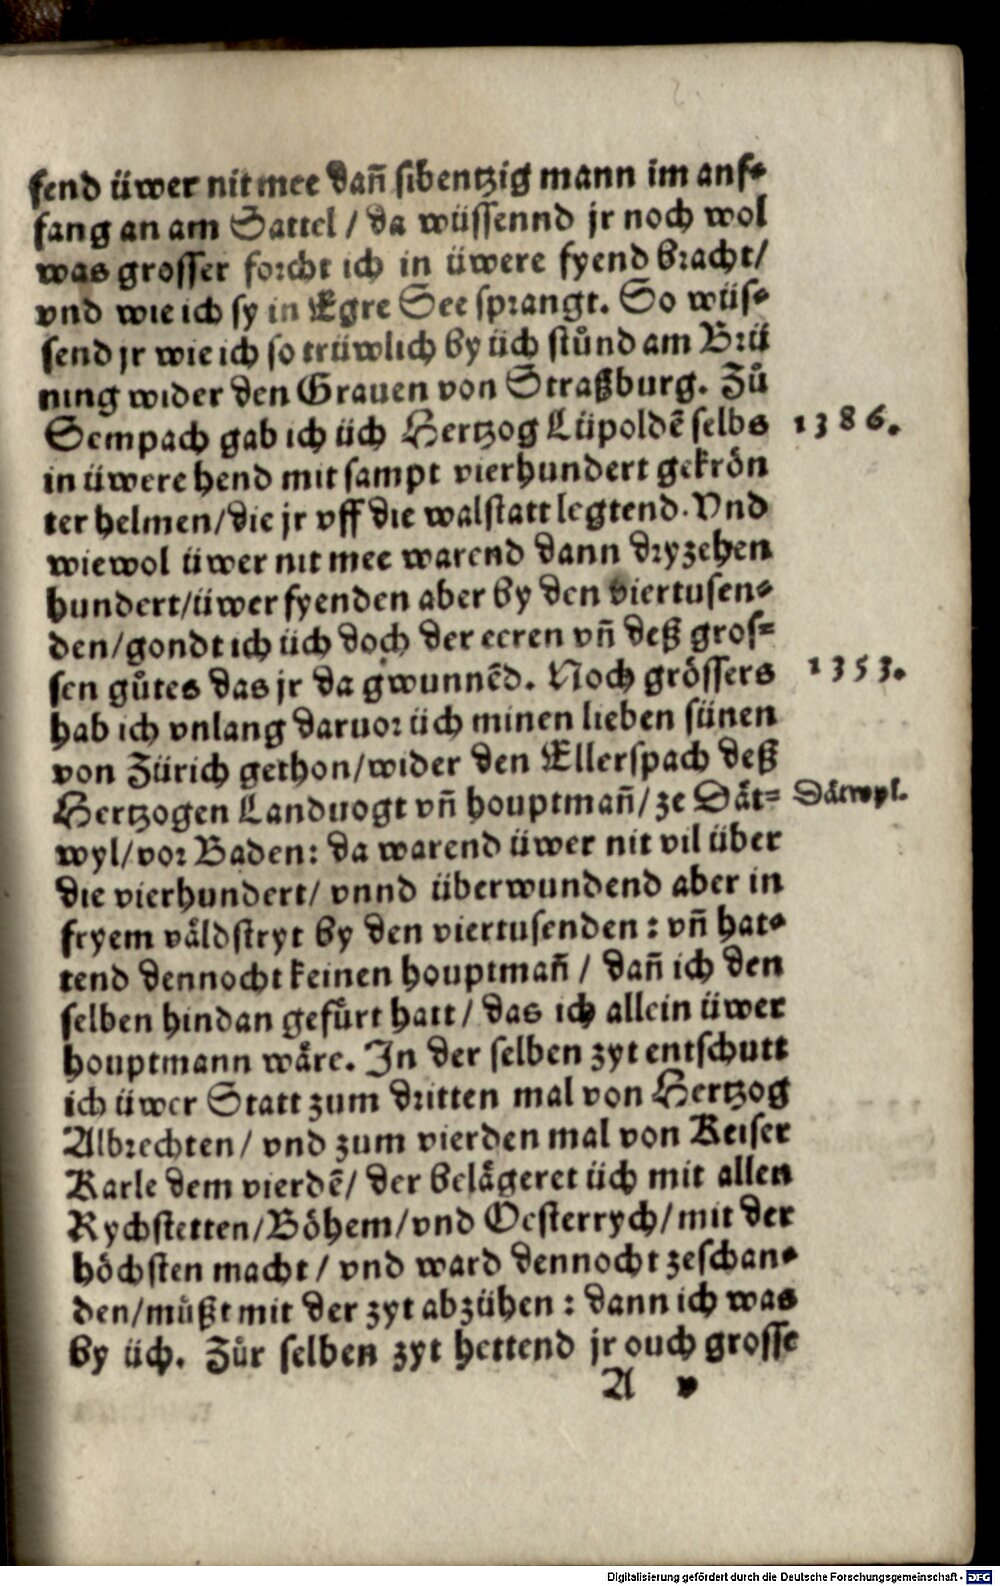 send üwer nit mee dañ sibentzig mann im anf⸗
fang an am Sattel / da wüssennd jr noch wol
was grosser forcht ich in üwere fyend bracht/
vnd wie ich sy in Egre See sprangt. So wüs⸗
send jr wie ich so trüwlich by üch stůnd am Brü
ning wider den Grauen von Straßburg. Zů
Sempach gab ich üch Hertzog Lüpoldē selbs
1386.
in üwere hend mit sampt vierhundert gekrön
ter helmen/die jr vff die walstatt legtend. Vnd
wiewol üwer nit mee warend dann dryzehen
hundert/üwer fyenden aber by den viertusen⸗
den/gondt ich üch doch der eeren vñ deß gros⸗
sen gůtes das jr da gwunnēd. Noch grössers
1353.
hab ich vnlang daruor üch minen lieben sünen
von Zürich gethon/wider den Ellerspach deß
Hertzogen Landuogt vñ houptmañ/ ze Dåt⸗
Dåtwyl.
wyl/vor Baden: da warend üwer nit vil über
die vierhundert/ vnnd überwundend aber in
fryem våldstryt by den viertusenden : vñ hat⸗
tend dennocht keinen houptmañ / dañ ich den
selben hindan gefürt hatt / das ich allein üwer
houptmann wåre. In der selben zyt entschutt
ich üwer Statt zum dritten mal von Hertzog
Albrechten/ vnd zum vierden mal von Keiser
Karle dem vierdē/ der belågeret üch mit allen
Rychstetten/Böhem/vnd Oesterrych/mit der
höchsten macht / vnd ward dennocht zeschan⸗
den/můßt mit der zyt abzühen : dann ich was
by üch. Zůr selben zyt hettend jr ouch grosse
A v
Digitalisierung gefördert durch die Deutsche Forschungsgemeinschaft - DFG